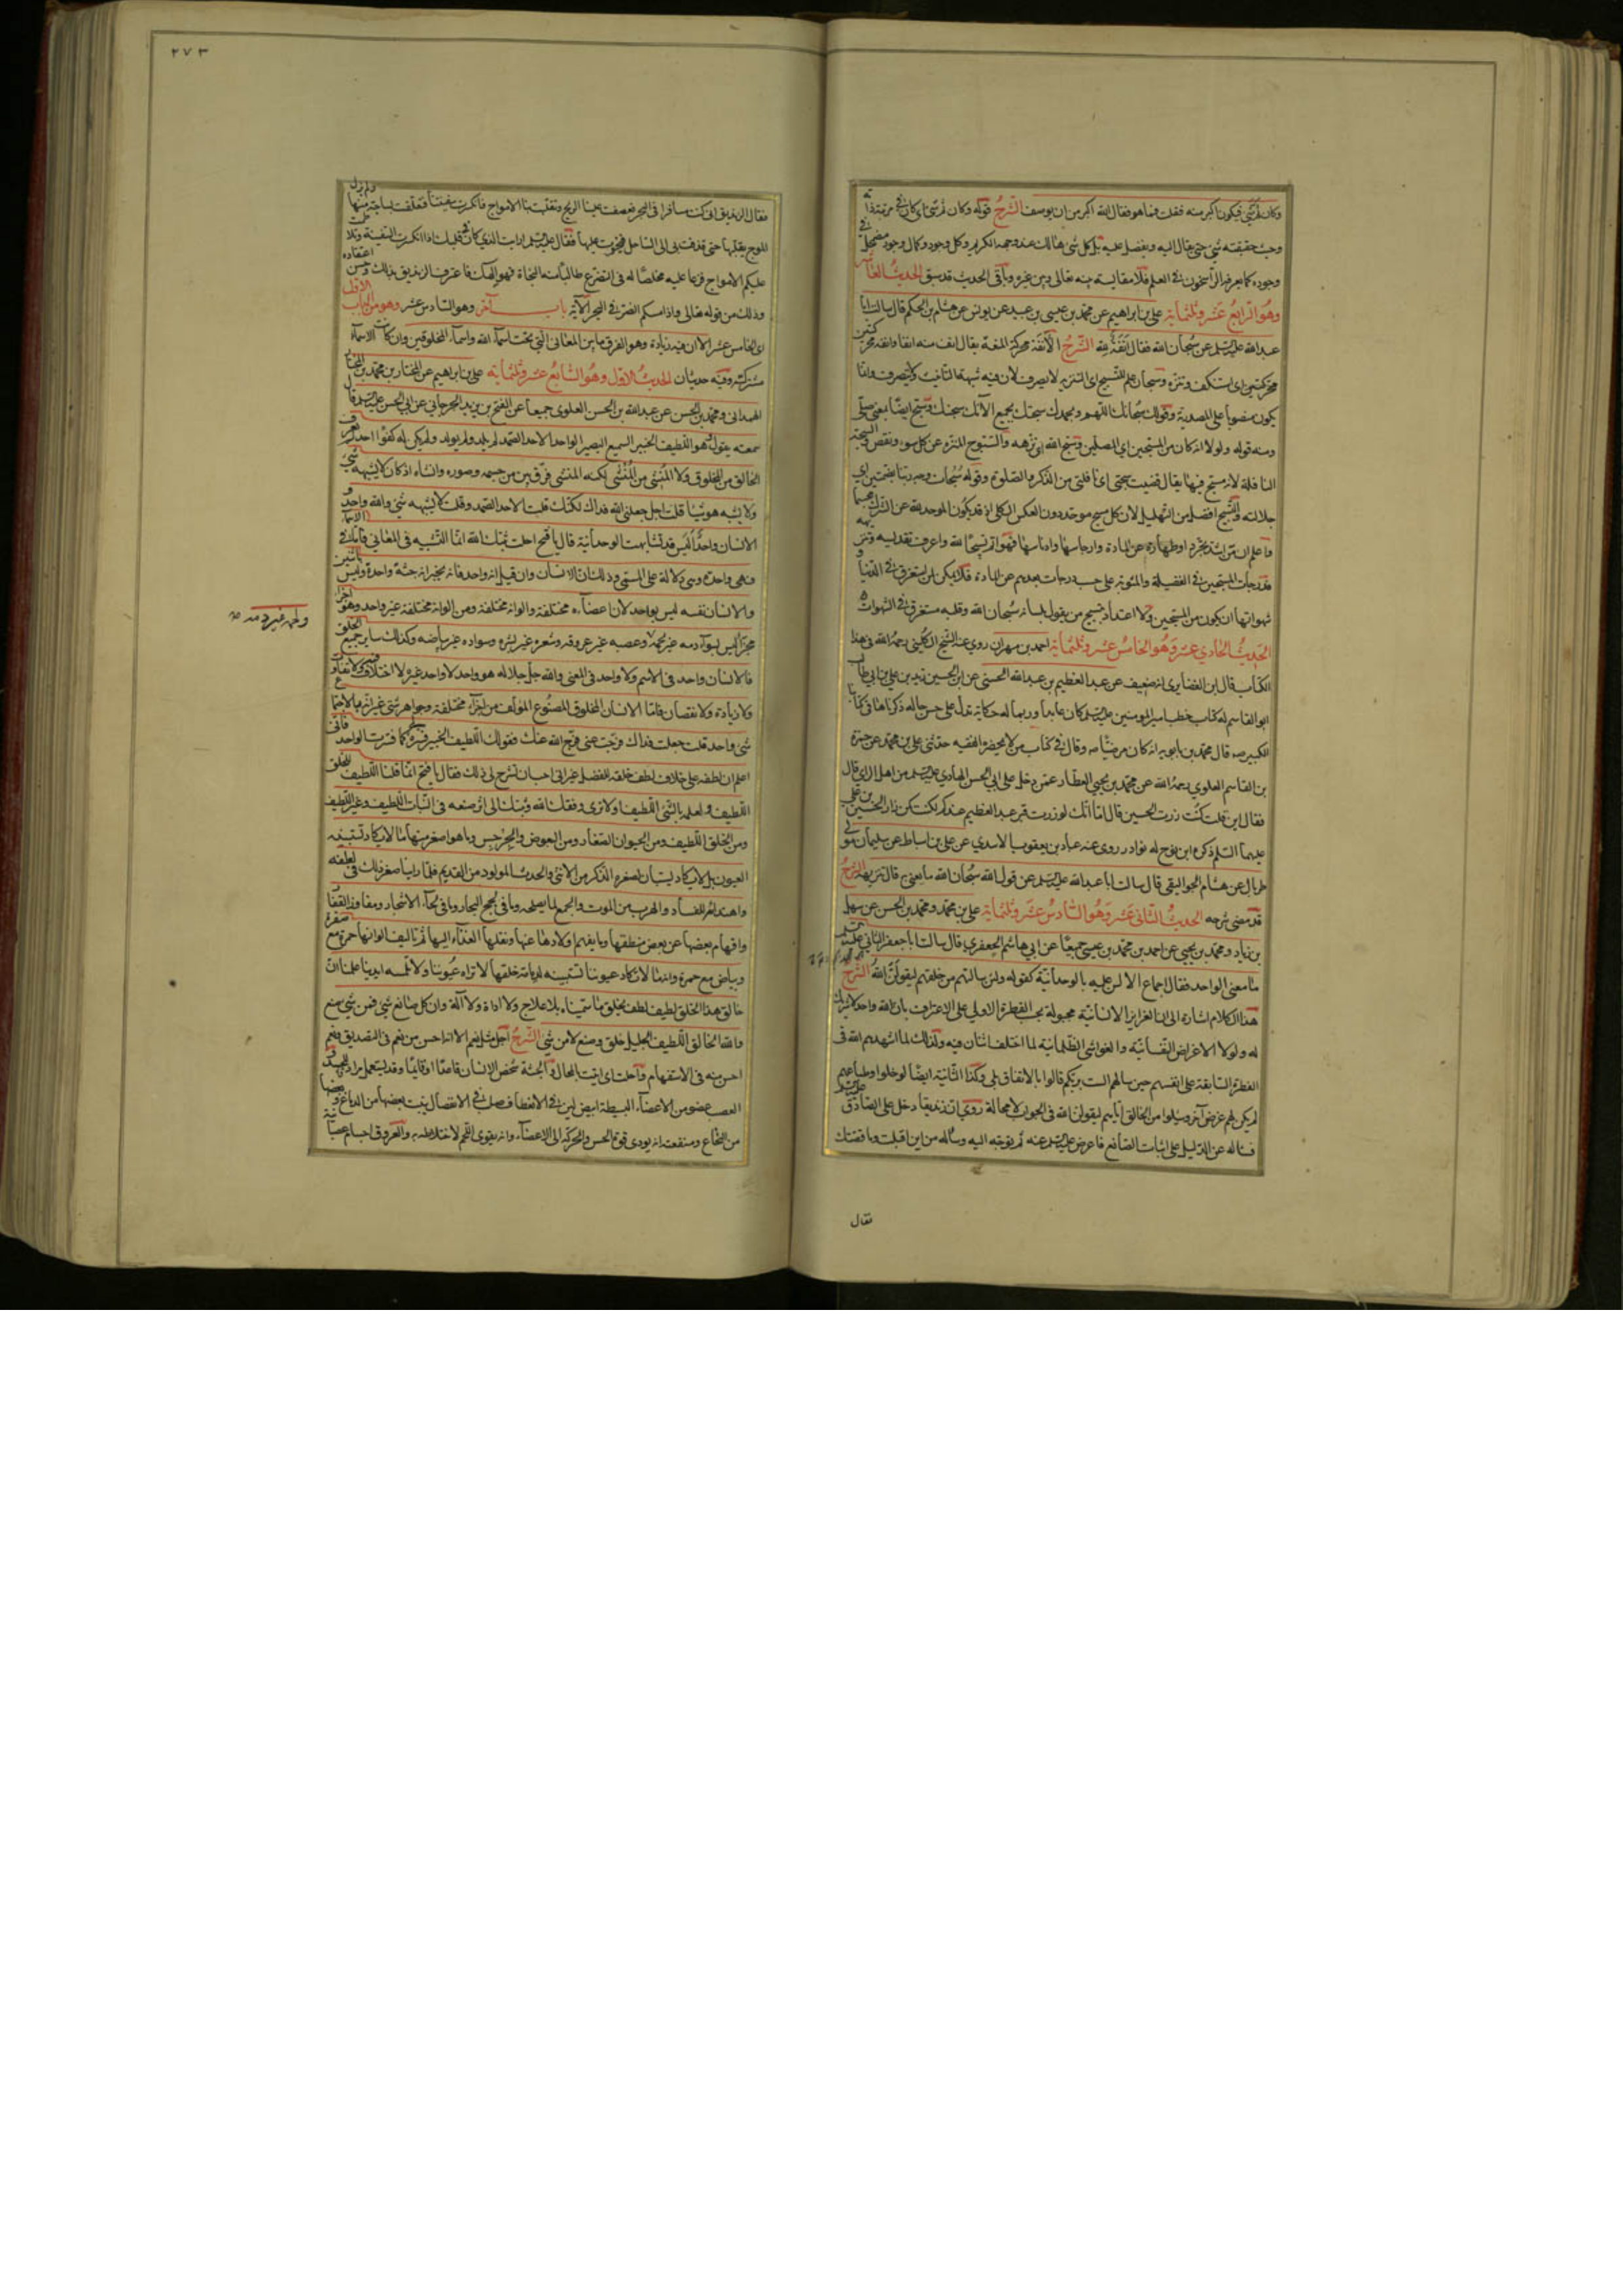 وكان ثم شيء فيكون اكبر منه فقلت فما هو فقال الله اكبر من ان يوصف الشرح قوله وكان ثم شيء اي كان في مرتبة ذاته
وحيث حقيقته شيء حتى يقال اليه ويفضل عليه بل كل شيء هالك عند وجهه الكريم وكل وجود وكمال وجود مضمحل في
وجوده كما يعرفه الراسخون في العلم فلا مقايسة بينه تعالى وبين غيره وباقي الحديث قد سبق الحديث العاشر
وهو الرابع عشر وثلثمائة علي بن ابراهيم عن محمد بن عيسى بن عبيد عن يونس عن هشام بن الحكم قال سالت ابا
عبد الله عليه السلم عن سبحان الله فقال انفة لله الشرح الأنفة محركة المغة يقال انف منه انفا وانفة محركتين
يكون منصوبا على المصدرية وقولك سبحانك اللهم وبحمدك سبحتك بجميع الآئك سبحتك وسبح ايضا بمعنى صلى
ومنه قوله ولولا انه كان من المسبحين اي المصلين وسبح الله اي نزهه والسبوح المنزه عن كل سوء ونقص والسبحة
النافلة لانه مسبح فيها يقال قضيت سبحتي اي نافلتي من الذكر والصلوة وقوله سبحات وجه ربنا بضمتين اي
جلالته والتسبيح افضل من التهليل لان كل مسبح موحد دون العكس الكلي اذ قد يكون الموحد
واعلم ان من اشد تجردا وطهارة عن المادة وارجاسها وادناسها فهو اتم تسبيحا لله واعرف بتقديسه وتنزيهه
فدرجات المسبحين في الفضيلة والمثوبة على حسب درجات بعدهم عن المادة فلا يمكن لمن استغرق في الدنيا و
شهواتها ان يكون من المسبحين ولا اعتداد بتسبيح من يقول بلسانه سبحان الله وقلبه مستغرق في الشهوات
الحديث الحادي عشر وهو الخامس عشر وثلثمائة احمد بن مهران روى عنه الشيخ الكليني رحمه الله في هذا
الكتاب قال ابن الغضايري انه ضعيف عن عبد العظيم بن عبد الله الحسني عن ابن الحسين زيد بن علي بن ابي طالب
ابو القاسم له كتاب خطب امير المؤمنين عليه السلم كان عابدا ورعا له حكاية تدل على حسن حاله ذكرناها في كتابنا
الكبير صه قال محمد بن بابويه انه كان مرضيا صه وقال في كتاب من لا يحضره الفقيه حدثني علي بن محمد عن حمزة
بن القاسم العلوي رحمه الله عن محمد بن يحيى العطار عمن دخل على ابي الحسن الهادي عليه السلم من اهل الري قال
فقال اين كنت قلت زرت الحسين قال اما انك لو زرت قبر عبد العظيم عندكم لكنت كمن زار الحسين بن علي
عليهما السلم ذكره ابن نوح له نوادر روى عنه عباد بن يعقوب الاسدي عن علي بن اسباط عن سليمان مولى
طربال عن هشام الجواليقي قال سالت ابا عبد الله عليه السلم عن قول الله سبحان الله ما يعني به قال تنزيهه الشرح
قد مضى شرحه الحديث الثاني عشر وهو السادس عشر وثلثمائة علي بن محمد ومحمد بن الحسن عن سهل
بن زياد ومحمد بن يحيى عن احمد بن محمد بن عيسى جميعا عن ابي هاشم الجعفري قال سالت ابا جعفر الثاني عليه السلم
ما معنى الواحد فقال اجماع الالسن عليه بالوحدانية كقوله ولئن سالتهم من خلقهم ليقولن الله الشرح
هذا الكلام اشارة الى ان الغرايز الانسانية مجبولة بحسب الفطرة الاولى على الاعتراف بان الله واحد لا شريك
له ولولا الاغراض النفسانية والغواشي الظلمانية لما اختلف اثنان فيه وكذلك لما اشهدهم الله في
الفطرة السابقة على انفسهم حين سالهم الست بربكم قالوا بالاتفاق بلى وكذا الثانية ايضا لو خلوا وطباعهم
لم يكن لهم غرض آخر وسئلوا من الخالق اياهم ليقولن الله في الجواب لا محالة روي ان زنديقا دخل على الصادق عليه السلم
فساله عن الدليل على اثبات الصانع فاعرض عليه السلم عنه ثم توجه اليه وساله من اين اقبلت وما قصتك
فقال
٢٧٣
فقال الزنديق اني كنت مسافرا في البحر فعصفت علينا الريح وتقلبت بنا الامواج فانكسرت سفينتنا فتعلقت بساجة منها ولم يزل
الموج يقلبها حتى قذفت بي الى الساحل فنجوت عليها فقال عليه السلم ارايت الذي كان قلبك اذا انكسرت السفينة وتلاطمت
عليكم الامواج فزعا عليه مخلصا له في التضرع طالبا منه النجاة فهو الهك فاعترف الزنديق بذلك وحسن اعتقاده
وذلك من قوله تعالى واذا مسكم الضر في البحر الآية باب آخر وهو السادس عشر وهو من الباب الاول
اي الخامس عشر الا ان فيه زيادة وهو الفرق ما بين المعاني التي تحت اسماء الله واسماء المخلوقين وان كانت الاسماء
مشتركة وفيه حديثان الحديث الاول وهو السابع عشر وثلثمائة علي بن ابراهيم عن المختار بن محمد بن المختار
الهمداني ومحمد بن الحسن عن عبد الله بن الحسن العلوي جميعا عن الفتح بن يزيد الجرجاني عن ابي الحسن عليه السلم قال
سمعته يقول وهو اللطيف الخبير السميع البصير الواحد الاحد الصمد لم يلد ولم يولد ولم يكن له كفوا احد لم يعرف
الخالق من المخلوق ولا المنشي من المنشى لكنه المنشئ فرق بين من جسمه وصوره وانشاه اذ كان لا يشبهه شيء
ولا يشبه هو شيئا قلت اجل جعلني الله فداك لكنك قلت الاحد الصمد وقلت لا يشبهه شيء والله واحد و
الانسان واحد أليس قد تشابهت الوحدانية قال يا فتح احلت ثبتك الله انما التشبيه في المعاني فاما في الاسماء
فهي واحدة وهي دلالة على المسمى وذلك ان الانسان وان قيل انه واحد فانه يخبر انه جثة واحدة وليس باثنين
والانسان نفسه ليس بواحد لان اعضاءه مختلفة والوانه مختلفة ومن الوانه مختلفة غير واحد وهو اجزاء
مجزاة ليس بسواء دمه غير لحمه وعصبه غير عروقه وشعره غير بشره وسواده غير بياضه وكذلك ساير جميع الخلق
فالانسان واحد في الاسم ولا واحد في المعنى والله جل جلاله هو واحد لا واحد غيره لا اختلاف فيه ولا تفاوت
ولا زيادة ولا نقصان فاما الانسان المخلوق المصنوع المؤلف من اجزاء مختلفة وجواهر شتى غير انه بالاجتماع
شيء واحد قلت جعلت فداك فرجت عني فرج الله عنك فقولك اللطيف الخبير فسره لي كما فسرت الواحد فاني
اعلم ان لطفه على خلاف لطف خلقه للفصل غير اني احب ان تشرح لي ذلك فقال يا فتح انما قلنا اللطيف للخلق
اللطيف ولعلمه بالشيء اللطيف اولا ترى وفقك الله وثبتك الى اثر صنعه في النبات اللطيف وغير اللطيف
ومن الخلق اللطيف ومن الحيوان الصغار ومن البعوض والجرجس وما هو اصغر منها ما لا يكاد تستبينه
العيون بل لا يكاد يستبان لصغره الذكر من الانثى والحدث المولود من القديم فلما راينا صغر ذلك في لطفه
واهتدائه للفساد والهرب من الموت والجمع لما يصلحه وما في لجج البحار وما في لحاء الاشجار ومفاوز والقفار
وافهام بعضها عن بعض منطقها وما يفهم به اولادها عنها ونقلها الغذاء اليها ثم تاليف الوانها حمرة مع صفرة
وبياض مع حمرة وانه ما لا تكاد عيوننا تستبينه لدمامة خلقها لا تراه عيوننا ولا تلمسه ايدينا علمنا ان
خالق هذا الخلق لطيف لطف بخلق ما سميناه بلا علاج ولا اداة ولا آلة وان كل صانع شيء فمن شيء صنع
والله الخالق اللطيف الجليل خلق وصنع لا من شيء الشرح اجل مثل نعم الا انه احسن من نعم في التصديق ونعم
احسن منه في الاستفهام واحلت اي اتيت بالمحال والجثة شخص الانسان قاعدا او قائما وقد يستعمل مرادفا للجسد و
العصب عضو من الاعضاء البسيطة ابيض لين في الانعطاف صلب في الانفصال ينبت بعضها من الدماغ وبعضها
من النخاع ومنفعته انه يودي قوة الحس والحركة الى الاعضاء وانه يقوي اللحم لاختلاطه به والعروق اجسام عصبانية